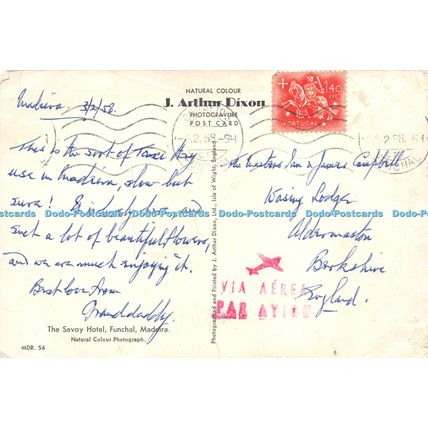 NATURAL COLOUR
J. Arthur Dixon
PHOTOGRAVURE
POST CARD
Madeira 3/2/58.
This is the sort of Taxi they
use in Madeira, slow but
sure! and
such a lot of beautiful flowers,
and we are much enjoying it.
Best love from
Granddaddy.
The Savoy Hotel, Funchal, Madeira.
Natural Colour Photograph.
MDR. 56
Photographed and Printed by J. Arthur Dixon, Ltd., Isle of Wight, England
1$40
PORTUGAL
2.58
2.58
The Ian & James Campbell
Lodge
Aldermaston
Berkshire
England.
VIA AÉREA
PAR AVION
Dodo-Postcards Dodo-Postcards Dodo-Postcards Dodo-Postcards